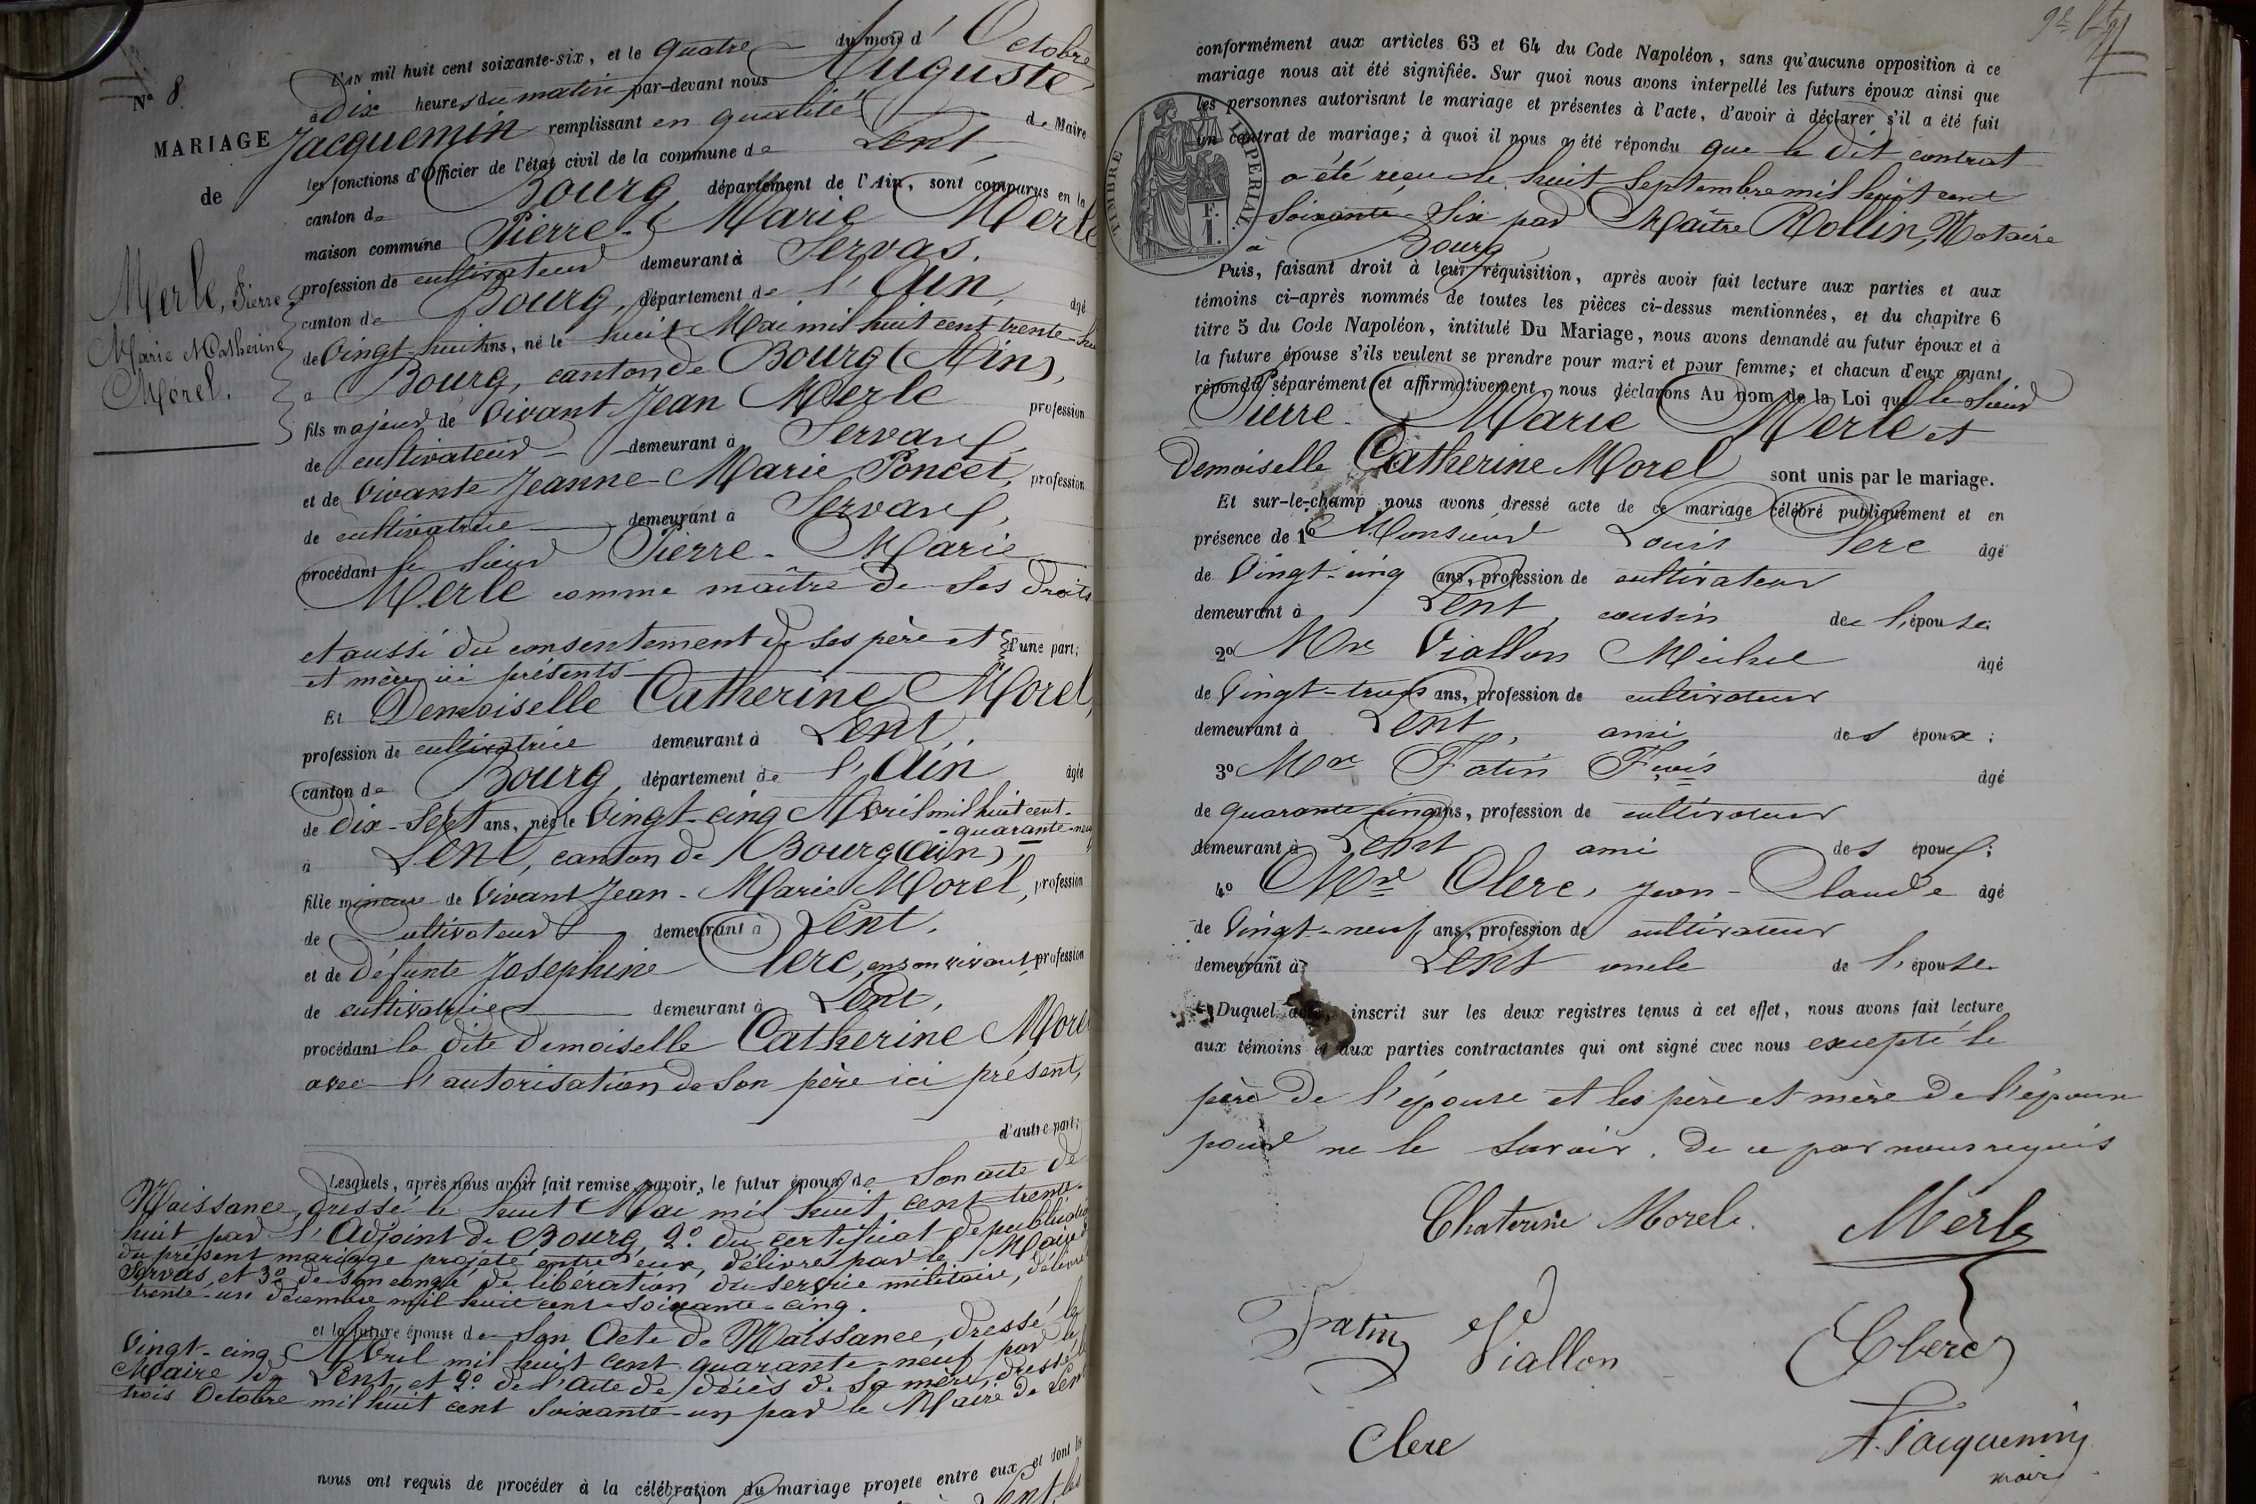 N° 8.
MARIAGE
de
Merle, Pierre
Marie & Catherine
Morel.
L'AN mil huit cent soixante-six, et le quatre du mois d'Octobre
à Dix heures du matin par-devant nous Auguste
Jacquemin remplissant en qualité de Maire
les fonctions d'Officier de l'état civil de la commune de Lent,
canton de Bourg, département de l'Ain, sont comparus en la
maison commune Pierre-Marie Merle
profession de cultivateur demeurant à Servas,
canton de Bourg, département de l'Ain, âgé
de Vingt-huit ans, né le huit Mai mil huit cent trente-huit
à Bourg, canton de Bourg (Ain),
fils majeur de Vivant Jean Merle profession
de cultivateur demeurant à Servas,
et de Vivante Jeanne-Marie Poncet, profession
de cultivatrice demeurant à Servas,
procédant le Sieur Pierre-Marie
Merle comme maître de ses droits
et aussi du consentement de ses père et d'une part;
et mère ici présents
Et Demoiselle Catherine Morel,
profession de cultivatrice demeurant à Lent,
canton de Bourg, département de l'Ain âgée
de Dix-Sept ans, née le Vingt-cinq Avril mil huit cent-
quarante-neuf
à Lent, canton de Bourg (Ain),
fille mineure de Vivant Jean-Marie Morel, profession
de Cultivateur demeurant à Lent,
et de défunte Josephine Clerc, en son vivant, profession
de cultivatrice demeurant à Lent,
procédant la dite Demoiselle Catherine Morel
avec l'autorisation de son père ici présent,
d'autre part;
Lesquels, après nous avoir fait remise, savoir, le futur époux de Son acte de
Naissance, dressé le huit Mai mil huit cent trente-
huit par l'Adjoint de Bourg, 2° du certificat de publication
du présent mariage projeté entre eux, délivré par le Maire de
Servas, et 3° de son congé de libération du service militaire, délivré
trente-un décembre mil huit cent soixante-cinq.
et la future épouse de Son Acte de Naissance, dressé le
Vingt-cinq Avril mil huit cent quarante-neuf par le
Maire de Lent, et 2° de l'acte de décès de sa mère, dressé le
trois Octobre mil huit cent soixante-un par le Maire de Lent
nous ont requis de procéder à la célébration du mariage projeté entre eux et dont les
Lent, les
conformément aux articles 63 et 64 du Code Napoléon, sans qu'aucune opposition à ce
mariage nous ait été signifiée. Sur quoi nous avons interpellé les futurs époux ainsi que
les personnes autorisant le mariage et présentes à l'acte, d'avoir à déclarer s'il a été fait
un contrat de mariage; à quoi il nous a été répondu que le dit contrat
a été reçu le huit Septembre mil huit cent
soixante-Six par Maître Rollin, Notaire
à Bourg
TIMBRE IMPERIAL.
Puis, faisant droit à leur réquisition, après avoir fait lecture aux parties et aux
témoins ci-après nommés de toutes les pièces ci-dessus mentionnées, et du chapitre 6
titre 5 du Code Napoléon, intitulé Du Mariage, nous avons demandé au futur époux et à
la future épouse s'ils veulent se prendre pour mari et pour femme; et chacun d'eux ayant
répondu séparément et affirmativement, nous déclarons Au nom de la Loi que le Sieur
Pierre-Marie Merle et
Demoiselle Catherine Morel sont unis par le mariage.
Et sur-le-champ nous avons dressé acte de ce mariage célébré publiquement et en
présence de 1° Monsieur Louis Serc âgé
de Vingt-cinq ans, profession de cultivateur
demeurant à Lent, cousin de l'épouse
2° Mr Viallon Michel âgé
de Vingt-trois ans, profession de cultivateur
demeurant à Lent, ami des époux;
3° Mr Fatin Fçois âgé
de quarante-cinq ans, profession de cultivateur
demeurant à Lent ami des époux;
4° Mr Clerc, Jean-Claude âgé
de Vingt-neuf ans, profession de cultivateur
demeurant à Lent oncle de l'épouse
Duquel acte, inscrit sur les deux registres tenus à cet effet, nous avons fait lecture
aux témoins et aux parties contractantes qui ont signé avec nous excepté le
père de l'épouse et les père et mère de l'époux
pour ne le savoir, de ce par nous requis
Chaterine Morel. Merle
Fatin Viallon Clerc
Clerc A. Jacquemin
maire